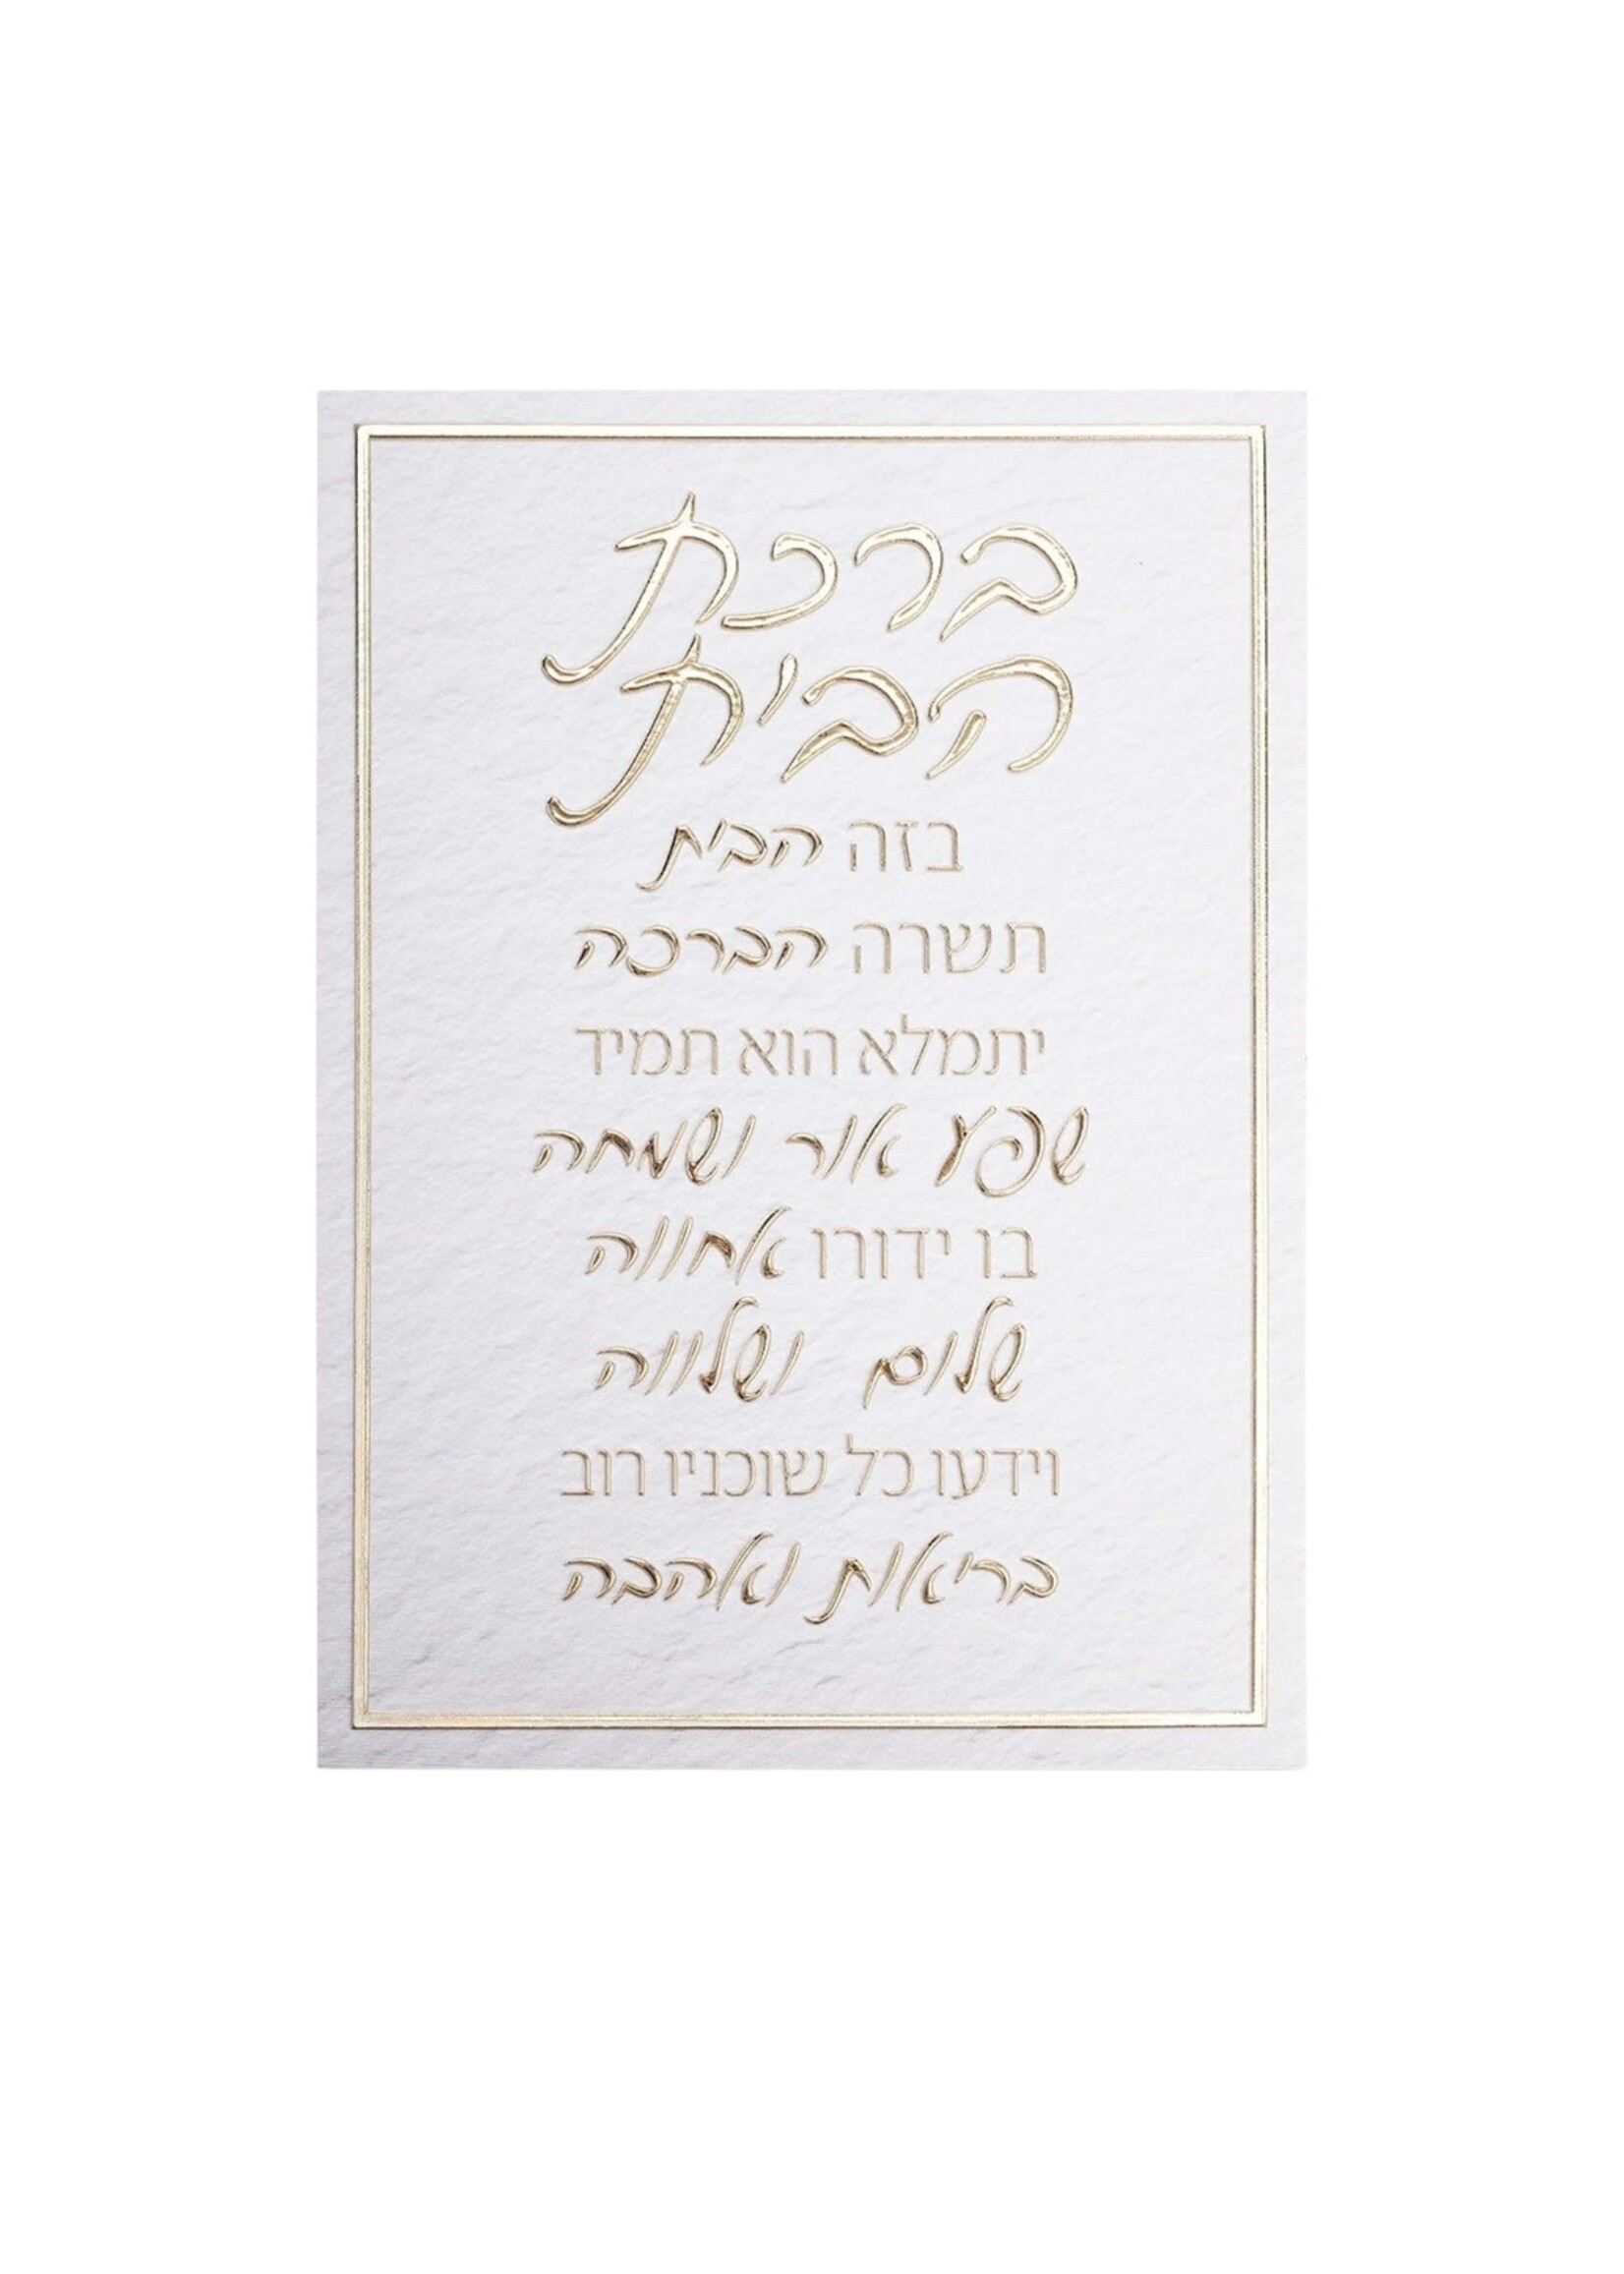 ברכת
הבית
בזה הבית
תשרה הברכה
יתמלא הוא תמיד
שפע אור ושמחה
בו ידורו אחווה
שלום ושלווה
וידעו כל שוכניו רוב
בריאות ואהבה